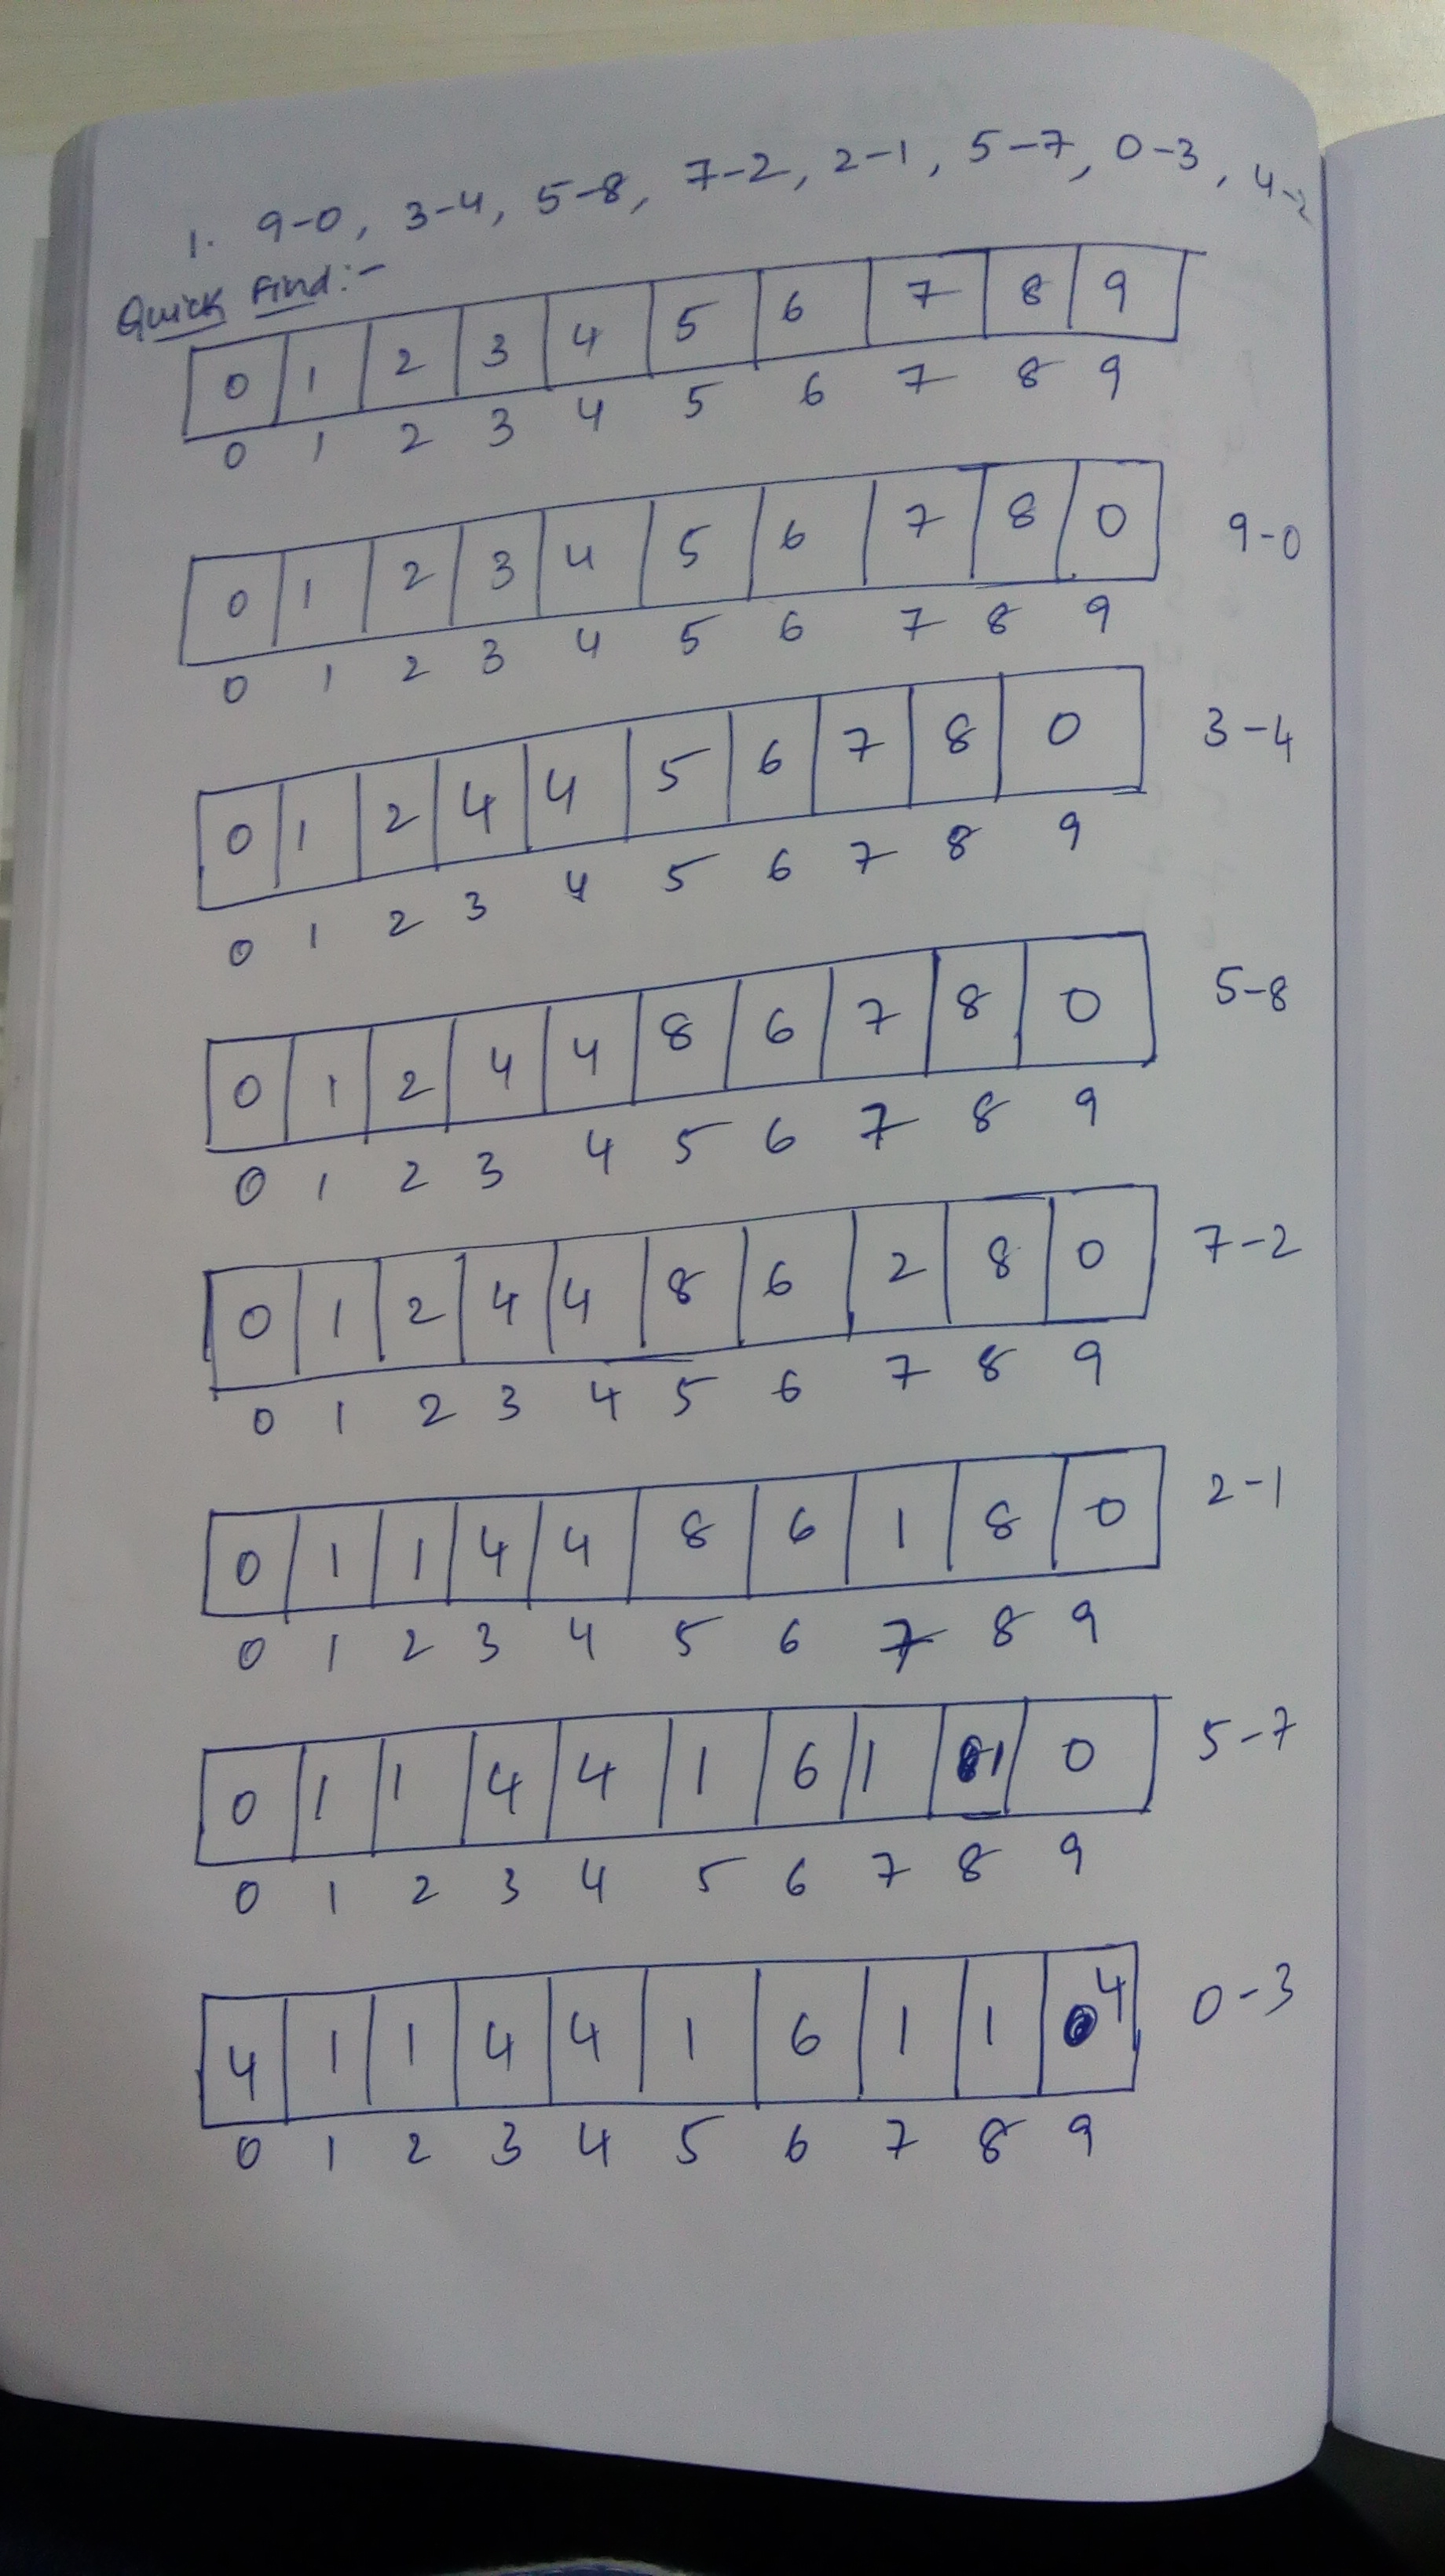 1. 9-0, 3-4, 5-8, 7-2, 2-1, 5-7, 0-3, 4-2
Quick Find:-
0 1 2 3 4 5 6 7 8 9
0 1 2 3 4 5 6 7 8 9
0 1 2 3 4 5 6 7 8 0 9-0
0 1 2 3 4 5 6 7 8 9
0 1 2 4 4 5 6 7 8 0 3-4
0 1 2 3 4 5 6 7 8 9
0 1 2 4 4 8 6 7 8 0 5-8
0 1 2 3 4 5 6 7 8 9
0 1 2 4 4 8 6 2 8 0 7-2
0 1 2 3 4 5 6 7 8 9
0 1 1 4 4 8 6 1 8 0 2-1
0 1 2 3 4 5 6 7 8 9
0 1 1 4 4 1 6 1 1 0 5-7
0 1 2 3 4 5 6 7 8 9
4 1 1 4 4 1 6 1 1 4 0-3
0 1 2 3 4 5 6 7 8 9